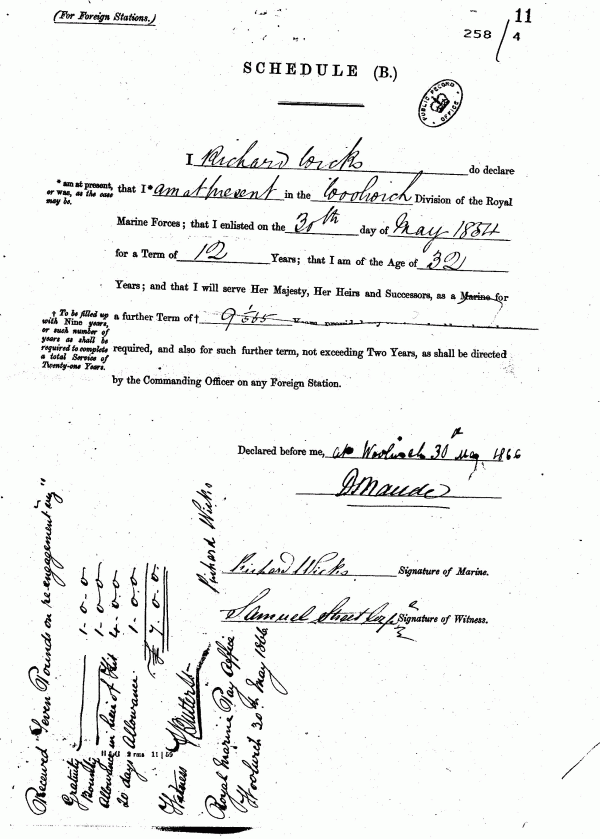 (For Foreign Stations.)
11
258 / 4
SCHEDULE (B.)
PUBLIC RECORD OFFICE
I Richard Wicks do declare
* am at present, or was, as the case may be.
that I* am at present in the Woolwich Division of the Royal
Marine Forces; that I enlisted on the 30th day of May 1854
for a Term of 12 Years; that I am of the Age of 32
Years; and that I will serve Her Majesty, Her Heirs and Successors, as a Marine for
† To be filled up with Nine years, or such number of years as shall be required to complete a total Service of Twenty-one Years.
a further Term of† 9
required, and also for such further term, not exceeding Two Years, as shall be directed
by the Commanding Officer on any Foreign Station.
Declared before me, at Woolwich 30th May 1866
D Maude
Richard Wicks Signature of Marine.
Samuel Street Signature of Witness.
Received "Seven Pounds on re-engagement"
Gratuity 1-0-0
Bounty 1-0-0
Allowance in lieu of Kit 4-0-0
20 days Allowance 1-0-0
£ 7.0.0
Richard Wicks
Witness
Royal Marine Pay Office
Woolwich 30th May 1866